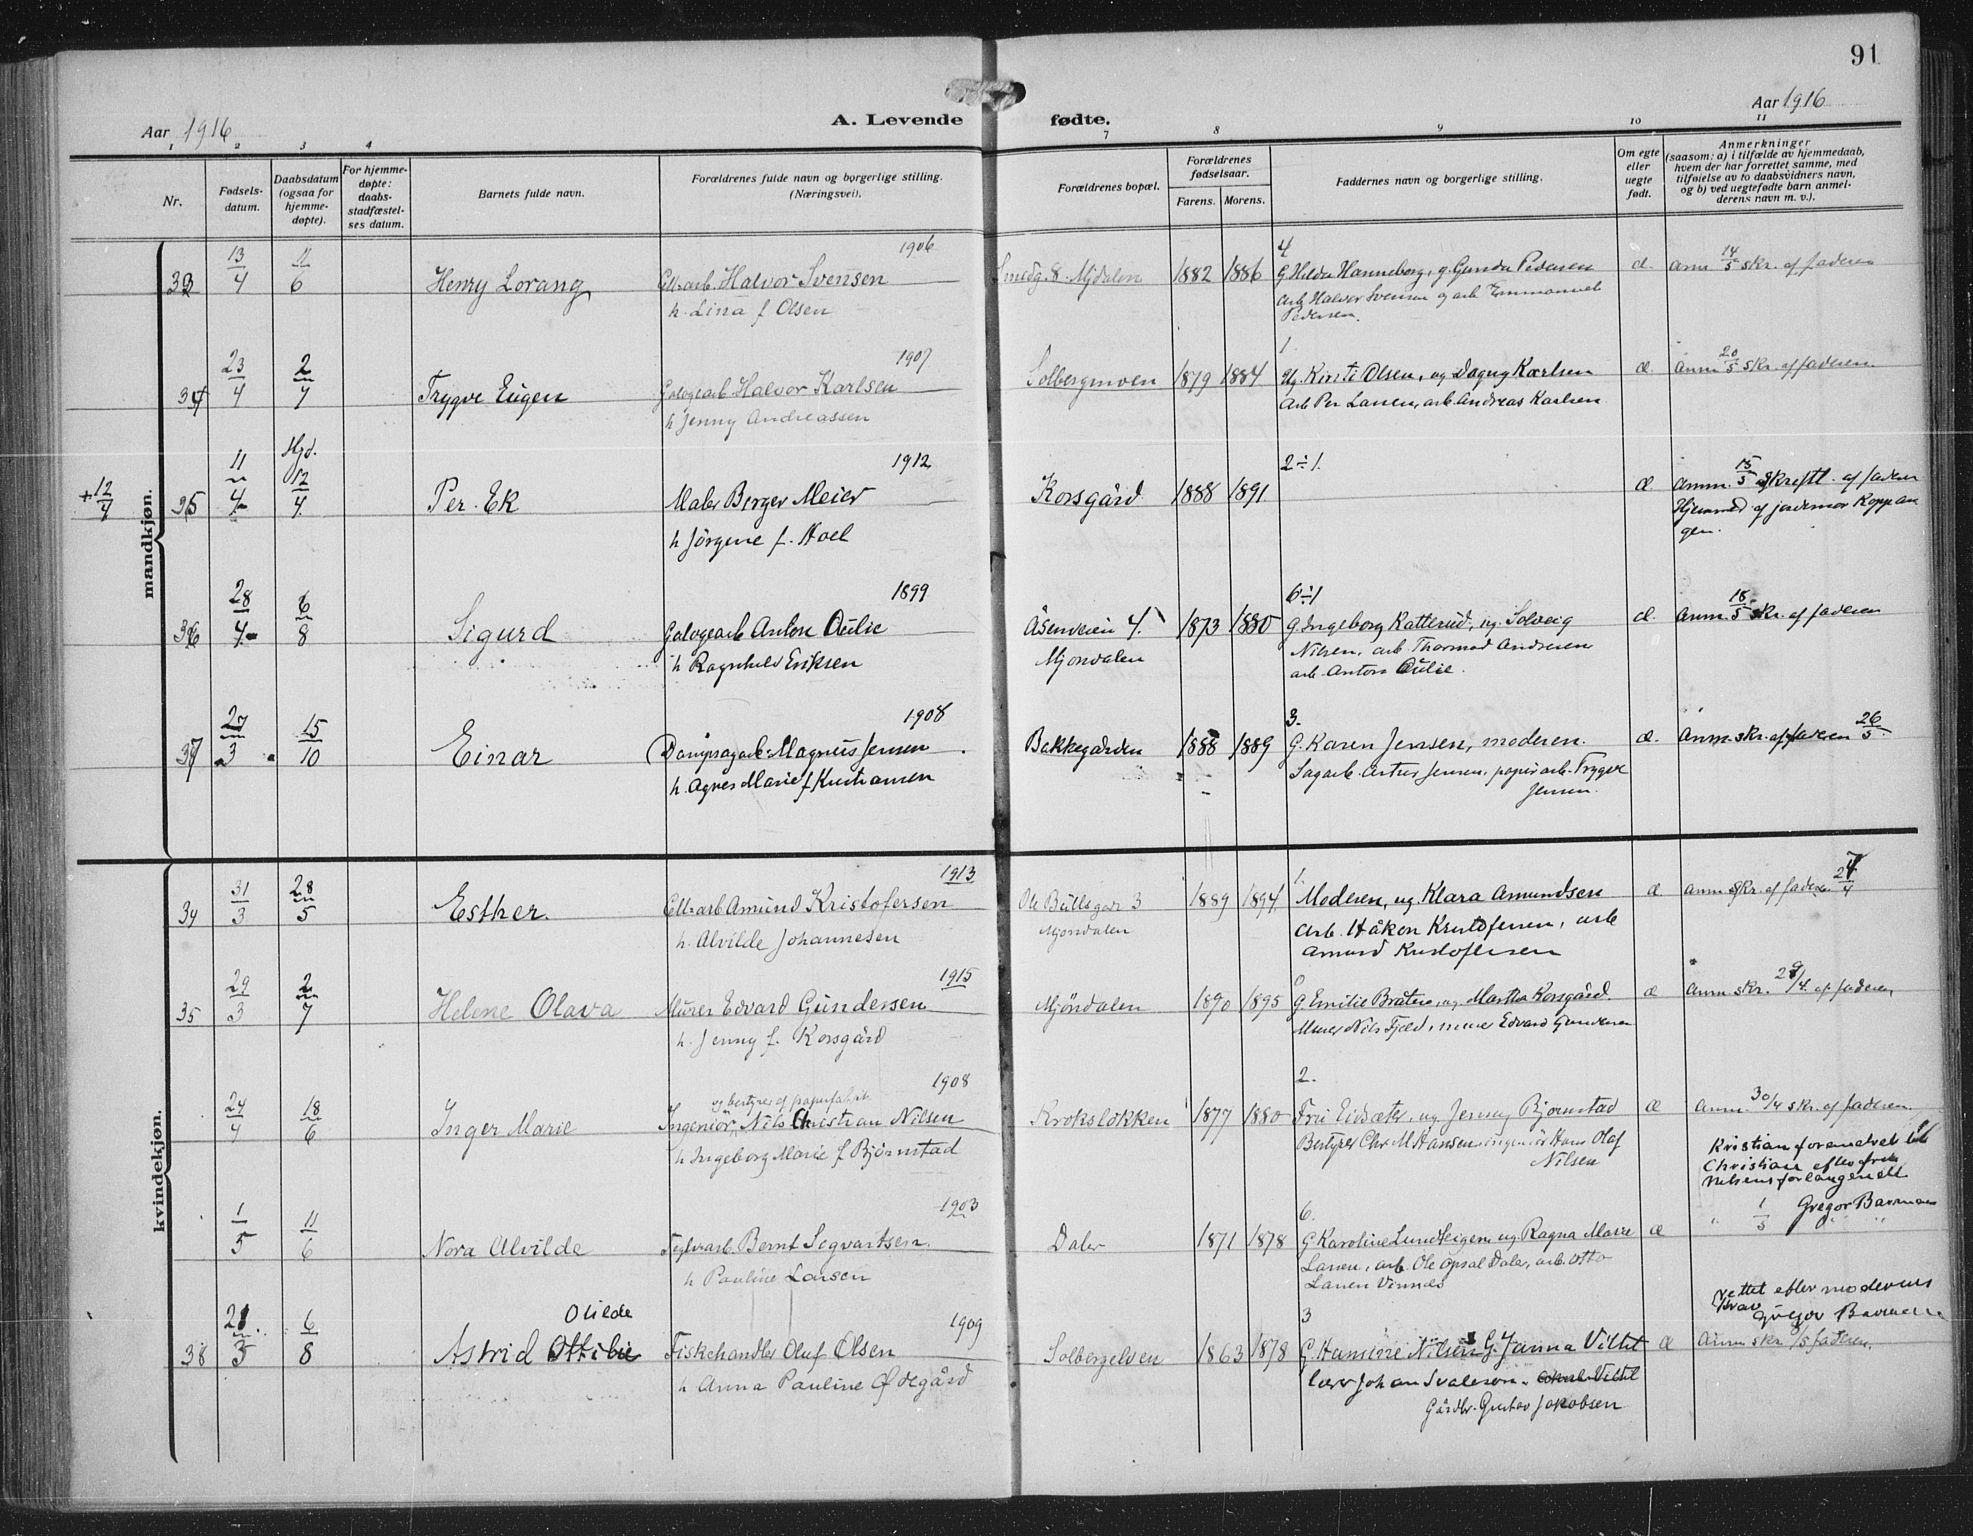 91
Aar 1916
A. Levende fødte.
Aar 1916
1 2 3 4 7 8 9 10 11
Nr.
Fødsels-
datum.
Daabsdatum
(ogsaa for
hjemme-
døpte).
For hjemme-
døpte:
daabs-
stadfæstel-
ses datum.
Barnets fulde navn.
Forældrenes fulde navn og borgerlige stilling.
(Næringsvei).
Forældrenes bopæl.
Forældrenes
fødselsaar.
Farens. Morens.
Faddernes navn og borgerlige stilling.
Om egte
eller
uegte
født.
Anmerkninger
(saasom: a) i tilfælde av hjemmedaab,
hvem der har forrettet samme, med
tilføielse av to daabsvidners navn,
og b) ved uegtefødte barn anmel-
derens navn m. v.).
mandkjøn.
1906 4
33 13/4 11/6 Henry Lorang Cell.arb. Halvor Svensen Smedg. 8. Mjdalen 1882 1886 G Hilda Hanneborg, g. Gunda Pedersen æ. anm 14/5 skr. af faderen
h. Lina f Olsen arb Halvor Svensen og arb Emmanuel
Pedersen.
1907 1.
34 23/4 2/7 Trygve Eugen Gologearb. Halvor Karlsen Solbergmoen 1879 1884 Ug. Kirsti Olsen, ug Dagny Karlsen æ. anm 20/5 skr. af faderen.
h Jenny Andreassen arb Per Larsen, arb. Andreas Karlsen
1912 2÷1.
+12/4 35 11/4 Hjd. 12/4 Per. Ek Maler Berger Meier Korsgård 1888 1891 æ anm. 15/5 skriftl. af faderen
h Jörgine f. Hoel Hjemmed af jordemor Koppan
gen.
1899 6÷1
36 28/4 6/8 Sigurd Gologearb Anton Aulie Åsenveien 4. 1873 1880 G Ingeborg Katterud, ug. Solveig æ. anm. 18/5 skr. af faderen
h Ragnhild Eriksen Mjöndalen Nilsen, arb. Thormod Andresen
arb. Anton Aulie.
1908 3.
37 27/3 15/10 Einar Dampsagarb. Magnus Jensen Bakkegården 1888 1889 G. Karen Jensen, moderen. æ. anm. skr. af faderen 26/5.
h. Agnes Marie f Kristiansen Sagarb. Artur Jensen, papirarb. Trygve
Jensen.
kvindekjøn.
1913 1.
34 31/3 28/5 Esther. Cell.arb Amund Kristofersen Ole Bullsgade 3 1889 1894 Moderen, ug Klara Amundsen æ anm skr. af faderen 24/4
h. Alvilde Johannesen Mjöndalen arb. Håkon Kristofersen, arb
Amund Kristoffersen
1915
35 29/3 2/7 Helene Olava Murer Edvard Gundersen Mjöndalen 1890 1895 G Emilie Bråten, ug Martha Korsgård. æ anm. skr. 29/4. af faderen
h. Jenny f. Korsgård Murer Nils Fjeld, murer Edvard Gundersen
1908 2.
og bestyrer af papirfabrik
24/4 18/6 Inger Marie Ingeniör, Nils Christian Nilsen Kroksløkken 1877 1880 Fru Eidsæter, ug Jenny Bjørnstad æ anm. 30/4 skr. af faderen.
h Ingeborg Marie f Bjørnstad Bestyrer Chr. M Hansen, ingeniör Hans Olaf
Nilsen
Kristian forandret til
Christian efter fru
Nilsens forlangende
Gregor Barman
1903 6.
1/5 11/6 Nora Alvilde Teglvarb. Bernt Sigvartsen Daler 1871 1878 G Karoline Lundteigen ug Ragna Marie æ " 1/5 " "
h Pauline Larsen Larsen, arb. Ole Opsal Daler, arb. Otto
Larsen Vinnes
rettet efter moderens
krav
Gregor Barman
Otilde 1909 3
38 21/3 6/8 Astrid Ottilie Fiskehandler Oluf Olsen Solbergelven 1863 1878 G Hansine Nilsen G. Janna Viltil æ anm skr. 8/5 faderen.
h Anna Pauline Ødegård lærer Johan Svalesen.
Gårdbr. Gustav Jakobsen